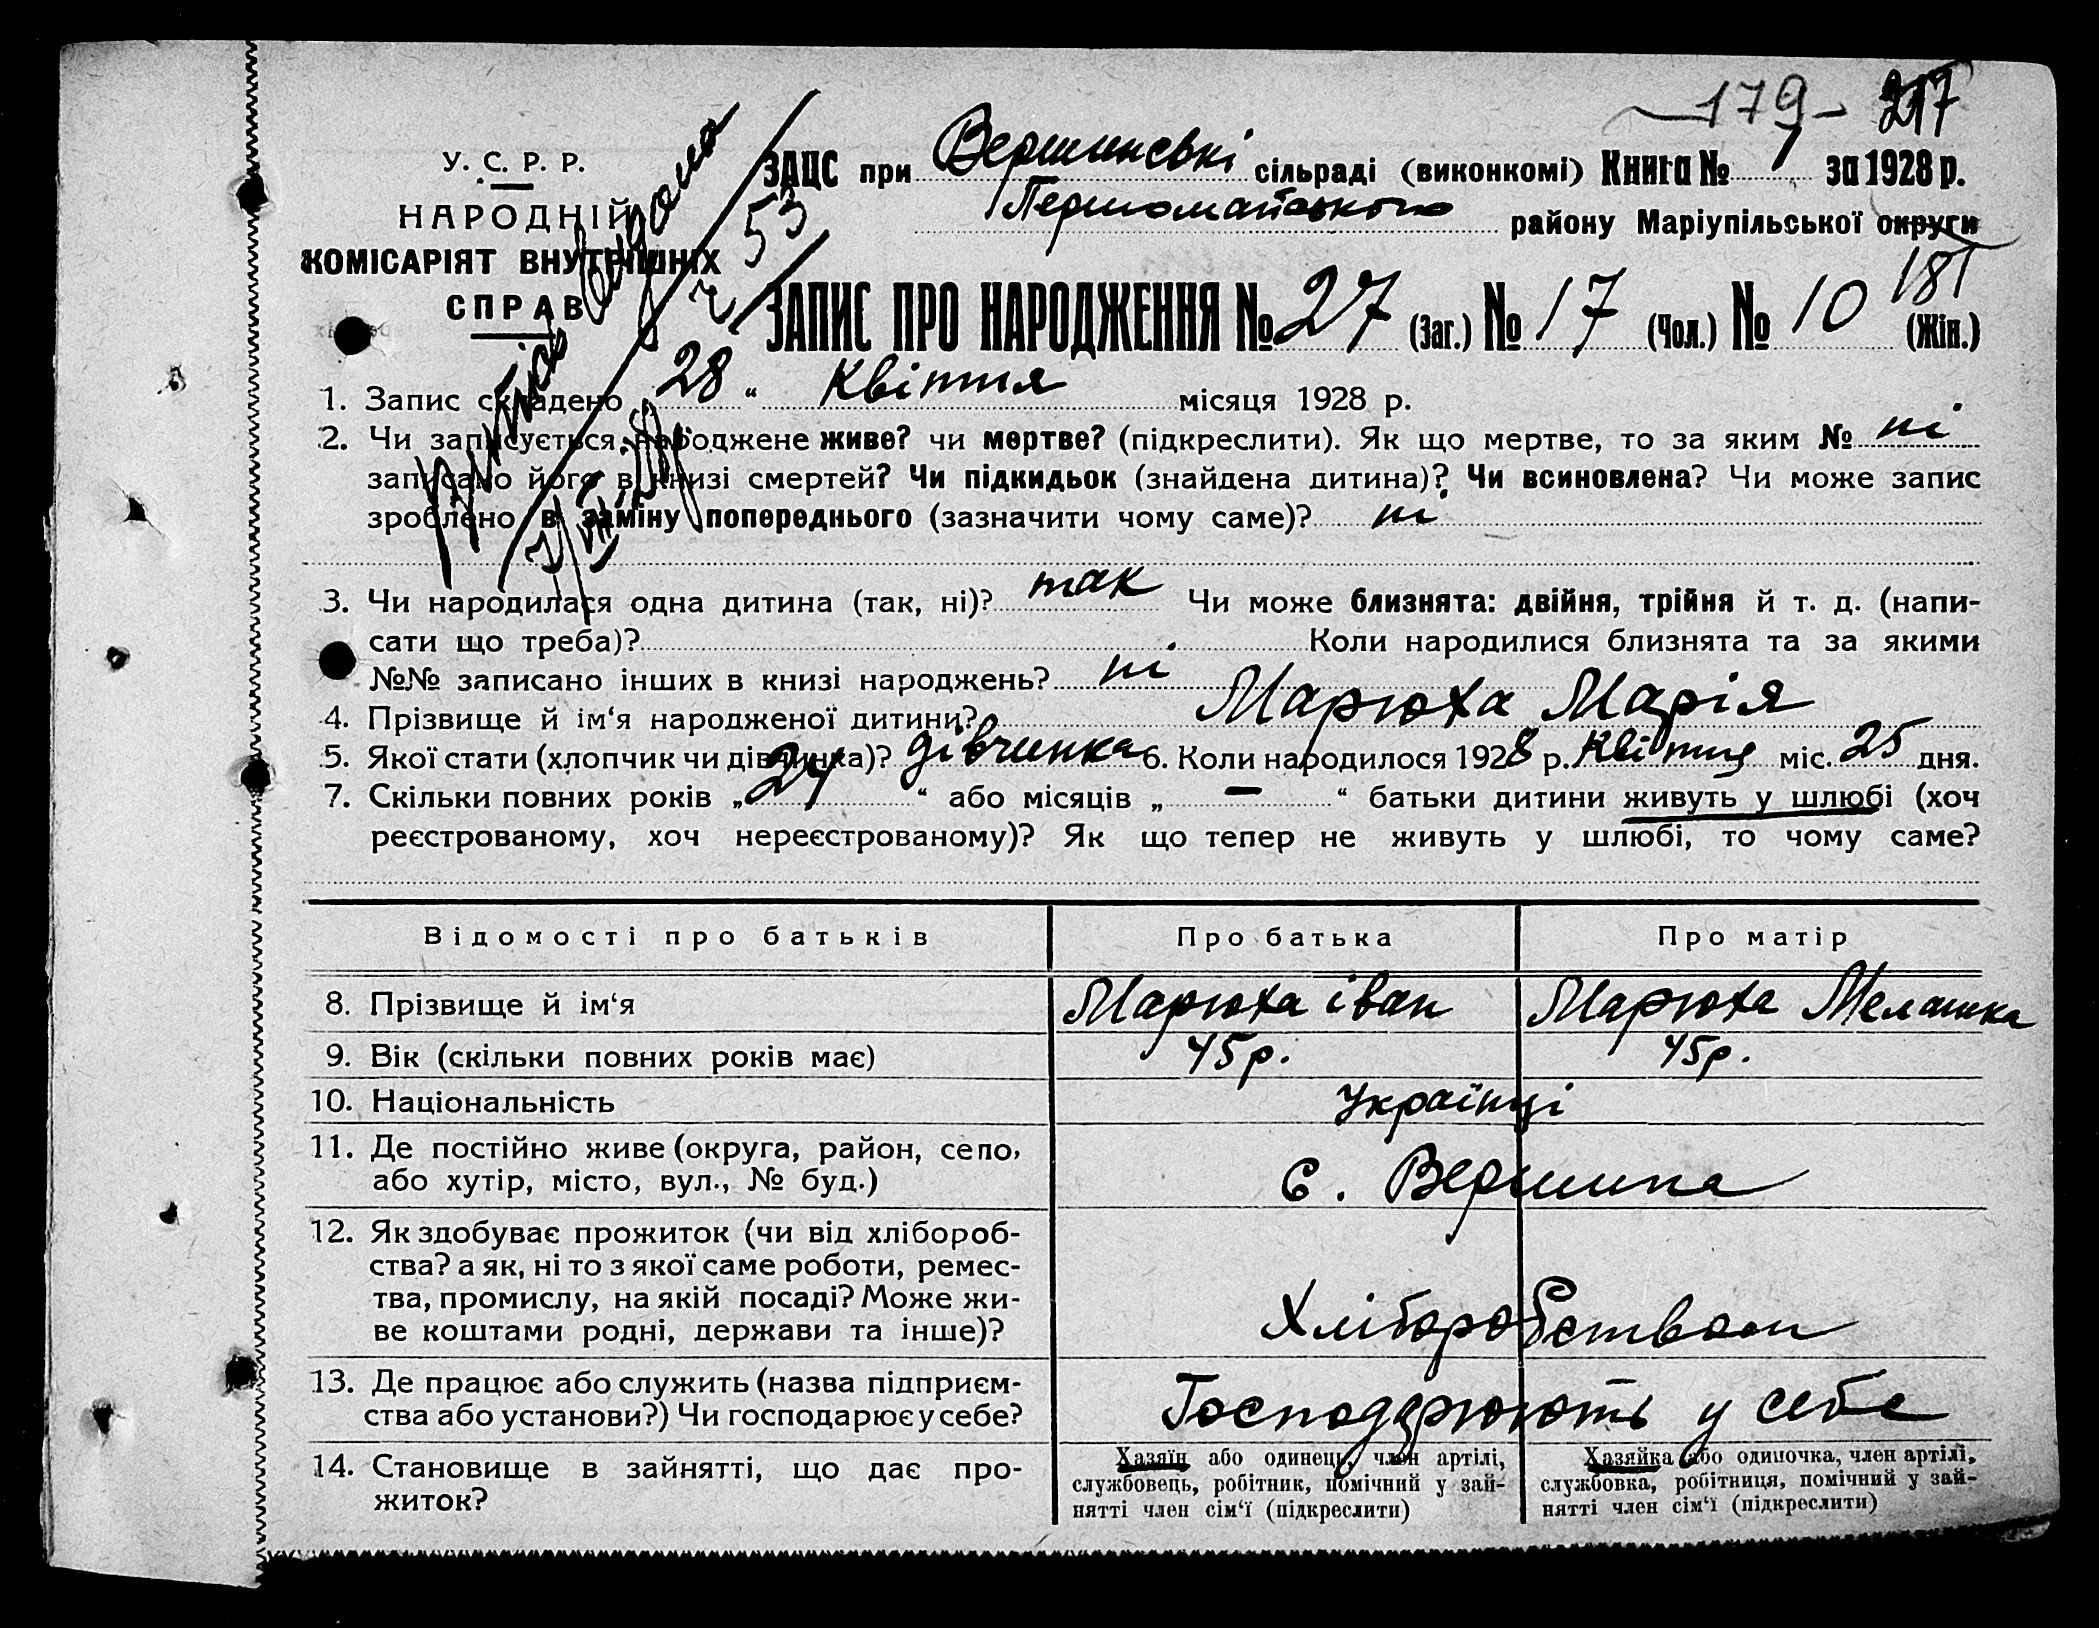 179 217
У. С. Р. Р.
НАРОДНІЙ
КОМІСАРІЯТ ВНУТРІШНІХ
СПРАВ
ЗАЦС при Вершинські сільраді (виконкомі) Книга № 1 за 1928 р.
Першомайського району Маріупільської округи
53
181
ЗАПИС ПРО НАРОДЖЕННЯ № 27 (Заг.) № 17 (Чол.) № 10 (Жін.)
1. Запис складено „28“ Квітня місяця 1928 р.
2. Чи записується народжене живе? чи мертве? (підкреслити). Як що мертве, то за яким № ні
записано його в книзі смертей? Чи підкидьок (знайдена дитина)? Чи всиновлена? Чи може запис
зроблено в заміну попереднього (зазначити чому саме)? ні
3. Чи народилася одна дитина (так, ні)? так Чи може близнята: двійня, трійня й т. д. (напи-
сати що треба)? Коли народилися близнята та за якими
№№ записано інших в книзі народжень? ні
4. Прізвище й ім‘я народженої дитини? Марюха Марія
5. Якої стати (хлопчик чи дівчинка)? дівчинка 6. Коли народилося 1928 р. Квітня міс. 25 дня.
7. Скільки повних років „24“ або місяців „—“ батьки дитини живуть у шлюбі (хоч
реєстрованому, хоч нереєстрованому)? Як що тепер не живуть у шлюбі, то чому саме?
Відомості про батьків Про батька Про матір
8. Прізвище й ім‘я Марюха Іван Марюха Меланка
9. Вік (скільки повних років має) 45 р. 45 р.
10. Національність Українці
11. Де постійно живе (округа, район, село,
або хутір, місто, вул., № буд.) с. Вершина
12. Як здобуває прожиток (чи від хлібороб-
ства? а як, ні то з якої саме роботи, ремес-
тва, промислу, на якій посаді? Може жи-
ве коштами родні, держави та інше)? Хліборобством
13. Де працює або служить (назва підприєм-
ства або установи?) Чи господарює у себе? Господарюють у себе
14. Становище в зайнятті, що дає про-
житок?
Хазяїн або одинець, член артілі,
службовець, робітник, помічний у зай-
нятті член сім‘ї (підкреслити)
Хазяйка або одиночка, член артілі,
службовка, робітниця, помічний у зай-
нятті член сім‘ї (підкреслити)